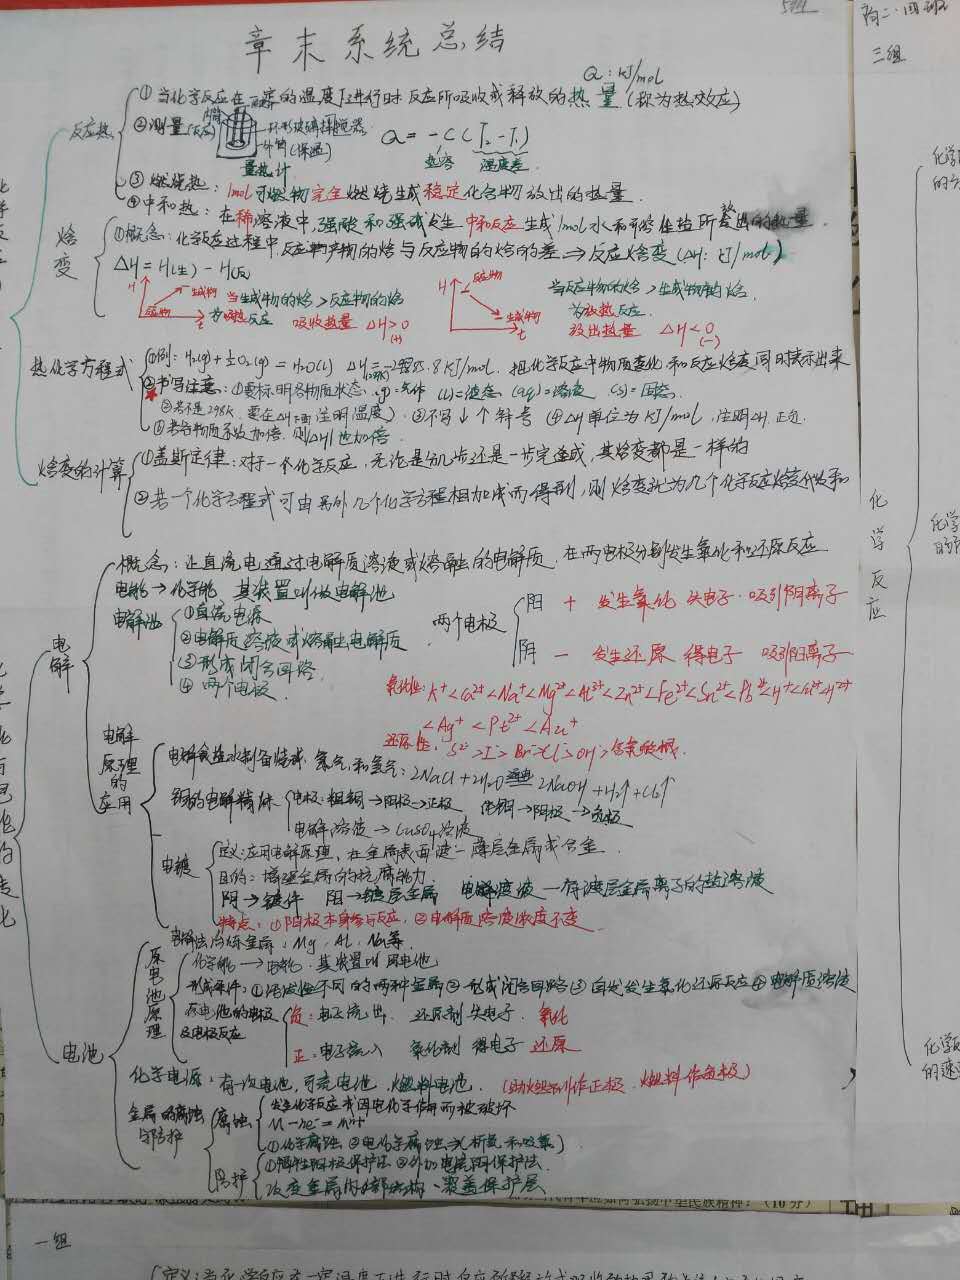 章末系统总结
高二·四班
三组
Q：kJ/mol
反应热
①当化学反应在一定的温度下进行时 反应所吸收或释放的热量（称为热效应）
②测量（反应）
环形玻璃搅拌器
外筒（保温）
量热计
Q = -C(T₂-T₁)
热容 温度差
③燃烧热：1mol可燃物完全燃烧生成稳定化合物放出的热量
④中和热：在稀溶液中，强酸和强碱发生中和反应生成1mol水和可溶性盐所放出的热量
焓变
①概念：化学反应过程中反应产物的焓与反应物的焓的差⇒反应焓变（ΔH：kJ/mol）
ΔH = H(生) - H(反)
H 反应物 生成物 t
当生成物的焓>反应物的焓
为吸热反应 吸收热量 ΔH>0 (+)
H 反应物 生成物 t
当反应物的焓>生成物的焓
为放热反应
放出热量 ΔH<0 (-)
热化学方程式
①例：H₂(g)+½O₂(g)=H₂O(l) ΔH(298K)=-285.8KJ/mol. 把化学反应中物质变化和反应焓变同时表示出来
②书写注意：①要标明各物质状态 (g)=气体 (l)=液态 (aq)=溶液 (s)=固态
②若不是298K，要在ΔH下面注明温度）③不写↓个符号 ④ΔH单位为KJ/mol，注明ΔH 正负
⑤若各物质系数加倍，则ΔH也加倍
焓变的计算
①盖斯定律：对于一个化学反应，无论是分几步还是一步完成，其焓变都是一样的
②若一个化学方程式可由另外几个化学方程相加减而得到，则焓变为几个化学反应焓变代数和
电解
概念：让直流电通过电解质溶液或熔融的电解质，在两电极分别发生氧化和还原反应
电能→化学能 其装置叫做电解池
电解池
①直流电源
②电解质溶液或熔融电解质
③形成闭合回路
④两个电极
两个电极
阳 + 发生氧化 失电子·吸引阴离子
阴 - 发生还原 得电子 吸引阳离子
氧化性：K⁺<Ca²⁺<Na⁺<Mg²⁺<Al³⁺<Zn²⁺<Fe²⁺<Sn²⁺<Pb²⁺<H⁺<Cu²⁺<Hg²⁺
<Ag⁺<Pt²⁺<Au⁺
还原性：S²⁻>I⁻>Br⁻>Cl⁻>OH⁻>含氧酸根
电解原理的应用
电解食盐水制备烧碱，氢气，和氯气：2NaCl+2H₂O 通电 2NaOH+H₂↑+Cl₂↑
铜的电解精炼
电极：粗铜→阳极→正极 纯铜→阴极→负极
电解溶液→CuSO₄溶液
电镀
定义：应用电解原理，在金属表面镀一薄层金属或合金
目的：增强金属的抗腐能力
阴→镀件 阳→镀层金属 电解液→含有镀层金属离子的盐溶液
特点：①阳极本身参与反应 ②电解质溶液浓度不变
电解法冶炼金属：Mg，Al，Na等
电池
原电池原理
化学能→电能 其装置叫原电池
形成条件：①活泼性不同的两种金属②形成闭合回路③自发发生氧化还原反应④电解质溶液
原电池的电极及电极反应
负：电子流出 还原剂失电子 氧化
正：电子流入 氧化剂 得电子 还原
化学电源：有一次电池，可充电池，燃料电池 （助燃剂作正极，燃料作负极）
金属的腐蚀与防护
腐蚀
发生化学反应或因电化学作用而被破坏
M-ne⁻=Mⁿ⁺
①化学腐蚀 ②电化学腐蚀⇒（析氢和吸氧）
防护
①牺牲阳极保护法 ②外加电流阴保护法
改变金属内部结构、覆盖保护层
化学反应
一组